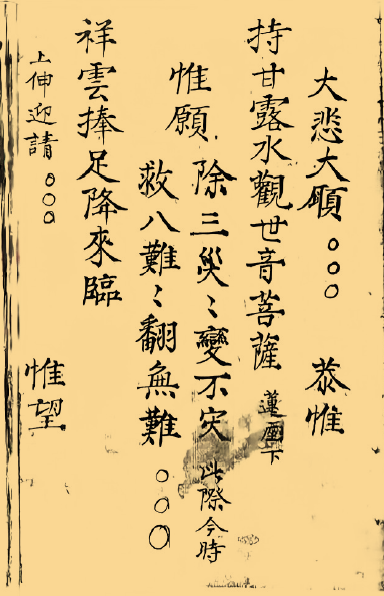 大悲大願○○○ 恭惟
持甘露水觀世音菩薩 蓮座下
惟願
除三災〻變不灾 此際今時
救八難〻翻無難○○○
祥雲捧足降來臨
上伸迎請○○○ 惟望